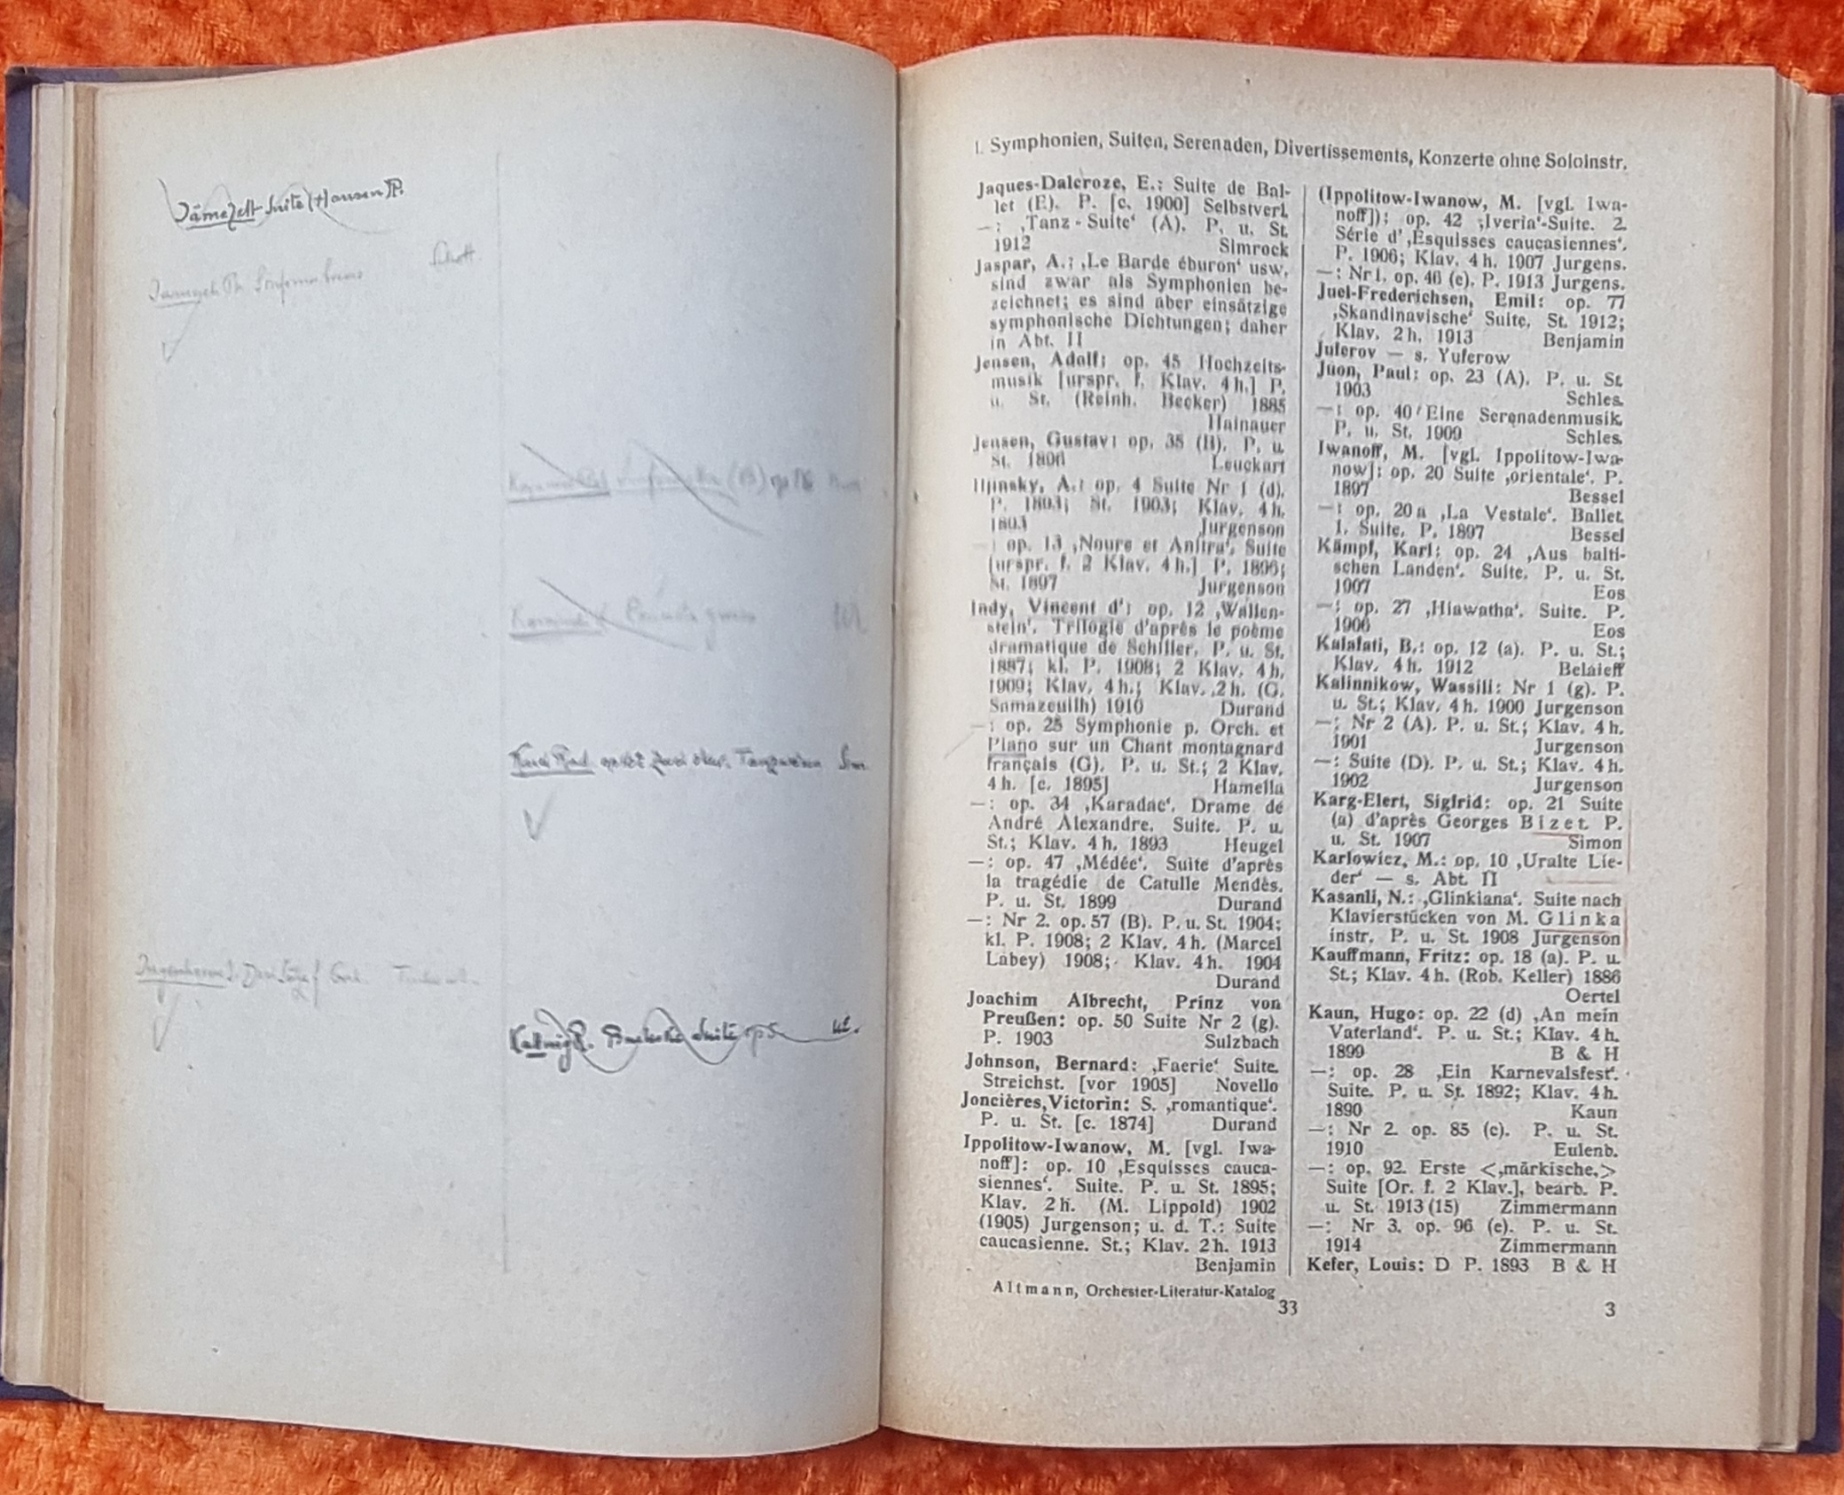 Suite (Hansen)
Schott
(B) op
op 5
I. Symphonien, Suiten, Serenaden, Divertissements, Konzerte ohne Soloinstr.
Jaques-Dalcroze, E.: Suite de Bal-
let (E). P. [c. 1900] Selbstverl.
—: ‚Tanz-Suite‘ (A). P. u. St.
1912 Simrock
Jaspar, A.: ‚Le Barde éburon‘ usw.
sind zwar als Symphonien be-
zeichnet; es sind aber einsätzige
symphonische Dichtungen; daher
in Abt. II
Jensen, Adolf: op. 45 Hochzeits-
musik [urspr. f. Klav. 4h.] P.
u. St. (Reinh. Becker) 1885
Hainauer
Jensen, Gustav: op. 35 (B). P. u.
St. 1896 Leuckart
Iljinsky, A.: op. 4 Suite Nr 1 (d).
P. 1893; St. 1903; Klav. 4h.
1893 Jurgenson
—: op. 13 ‚Noure et Anitra‘. Suite
[urspr. f. 2 Klav. 4h.] P. 1896;
St. 1897 Jurgenson
Indy, Vincent d': op. 12 ‚Wallen-
stein‘. Trilogie d'après le poème
dramatique de Schiller. P. u. St.
1887; kl. P. 1908; 2 Klav. 4h.
1909; Klav. 4h.; Klav. 2h. (G.
Samazeuilh) 1910 Durand
—: op. 25 Symphonie p. Orch. et
Piano sur un Chant montagnard
français (G). P. u. St.; 2 Klav.
4h. [c. 1895] Hamella
—: op. 34 ‚Karadac‘. Drame de
André Alexandre. Suite. P. u.
St.; Klav. 4h. 1893 Heugel
—: op. 47 ‚Médée‘. Suite d'après
la tragédie de Catulle Mendès.
P. u. St. 1899 Durand
—: Nr 2. op. 57 (B). P. u. St. 1904;
kl. P. 1908; 2 Klav. 4h. (Marcel
Labey) 1908; Klav. 4h. 1904
Durand
Joachim Albrecht, Prinz von
Preußen: op. 50 Suite Nr 2 (g).
P. 1903 Sulzbach
Johnson, Bernard: ‚Faerie‘ Suite.
Streichst. [vor 1905] Novello
Joncières, Victorin: S. ‚romantique‘.
P. u. St. [c. 1874] Durand
Ippolitow-Iwanow, M. [vgl. Iwa-
noff]: op. 10 ‚Esquisses cauca-
siennes‘. Suite. P. u. St. 1895;
Klav. 2h. (M. Lippold) 1902
(1905) Jurgenson; u. d. T.: Suite
caucasienne. St.; Klav. 2h. 1913
Benjamin
(Ippolitow-Iwanow, M. [vgl. Iwa-
noff]): op. 42 ‚Iveria‘-Suite. 2.
Série d' ‚Esquisses caucasiennes‘.
P. 1906; Klav. 4h. 1907 Jurgens.
—: Nr 1. op. 46 (e). P. 1913 Jurgens.
Juel-Frederichsen, Emil: op. 77
‚Skandinavische‘ Suite. St. 1912;
Klav. 2h. 1913 Benjamin
Juferov — s. Yuferow
Juon, Paul: op. 23 (A). P. u. St.
1903 Schles.
—: op. 40 Eine Serenadenmusik.
P. u. St. 1909 Schles.
Iwanoff, M. [vgl. Ippolitow-Iwa-
now]: op. 20 Suite ‚orientale‘. P.
1897 Bessel
—: op. 20a ‚La Vestale‘. Ballet.
1. Suite. P. 1897 Bessel
Kämpf, Karl: op. 24 ‚Aus balti-
schen Landen‘. Suite. P. u. St.
1907 Eos
—: op. 27 ‚Hiawatha‘. Suite. P.
1906 Eos
Kalafati, B.: op. 12 (a). P. u. St.;
Klav. 4h. 1912 Belaieff
Kalinnikow, Wassili: Nr 1 (g). P.
u. St.; Klav. 4h. 1900 Jurgenson
—: Nr 2 (A). P. u. St.; Klav. 4h.
1901 Jurgenson
—: Suite (D). P. u. St.; Klav. 4h.
1902 Jurgenson
Karg-Elert, Sigfrid: op. 21 Suite
(a) d'après Georges Bizet. P.
u. St. 1907 Simon
Karlowicz, M.: op. 10 ‚Uralte Lie-
der‘ — s. Abt. II
Kasanli, N.: ‚Glinkiana‘. Suite nach
Klavierstücken von M. Glinka
instr. P. u. St. 1908 Jurgenson
Kauffmann, Fritz: op. 18 (a). P. u.
St.; Klav. 4h. (Rob. Keller) 1886
Oertel
Kaun, Hugo: op. 22 (d) ‚An mein
Vaterland‘. P. u. St.; Klav. 4h.
1899 B & H
—: op. 28 ‚Ein Karnevalsfest‘.
Suite. P. u. St. 1892; Klav. 4h.
1890 Kaun
—: Nr 2. op. 85 (c). P. u. St.
1910 Eulenb.
—: op. 92. Erste <‚märkische‚>
Suite [Or. f. 2 Klav.], bearb. P.
u. St. 1913 (15) Zimmermann
—: Nr 3. op. 96 (e). P. u. St.
1914 Zimmermann
Kefer, Louis: D P. 1893 B & H
Altmann, Orchester-Literatur-Katalog
33 3